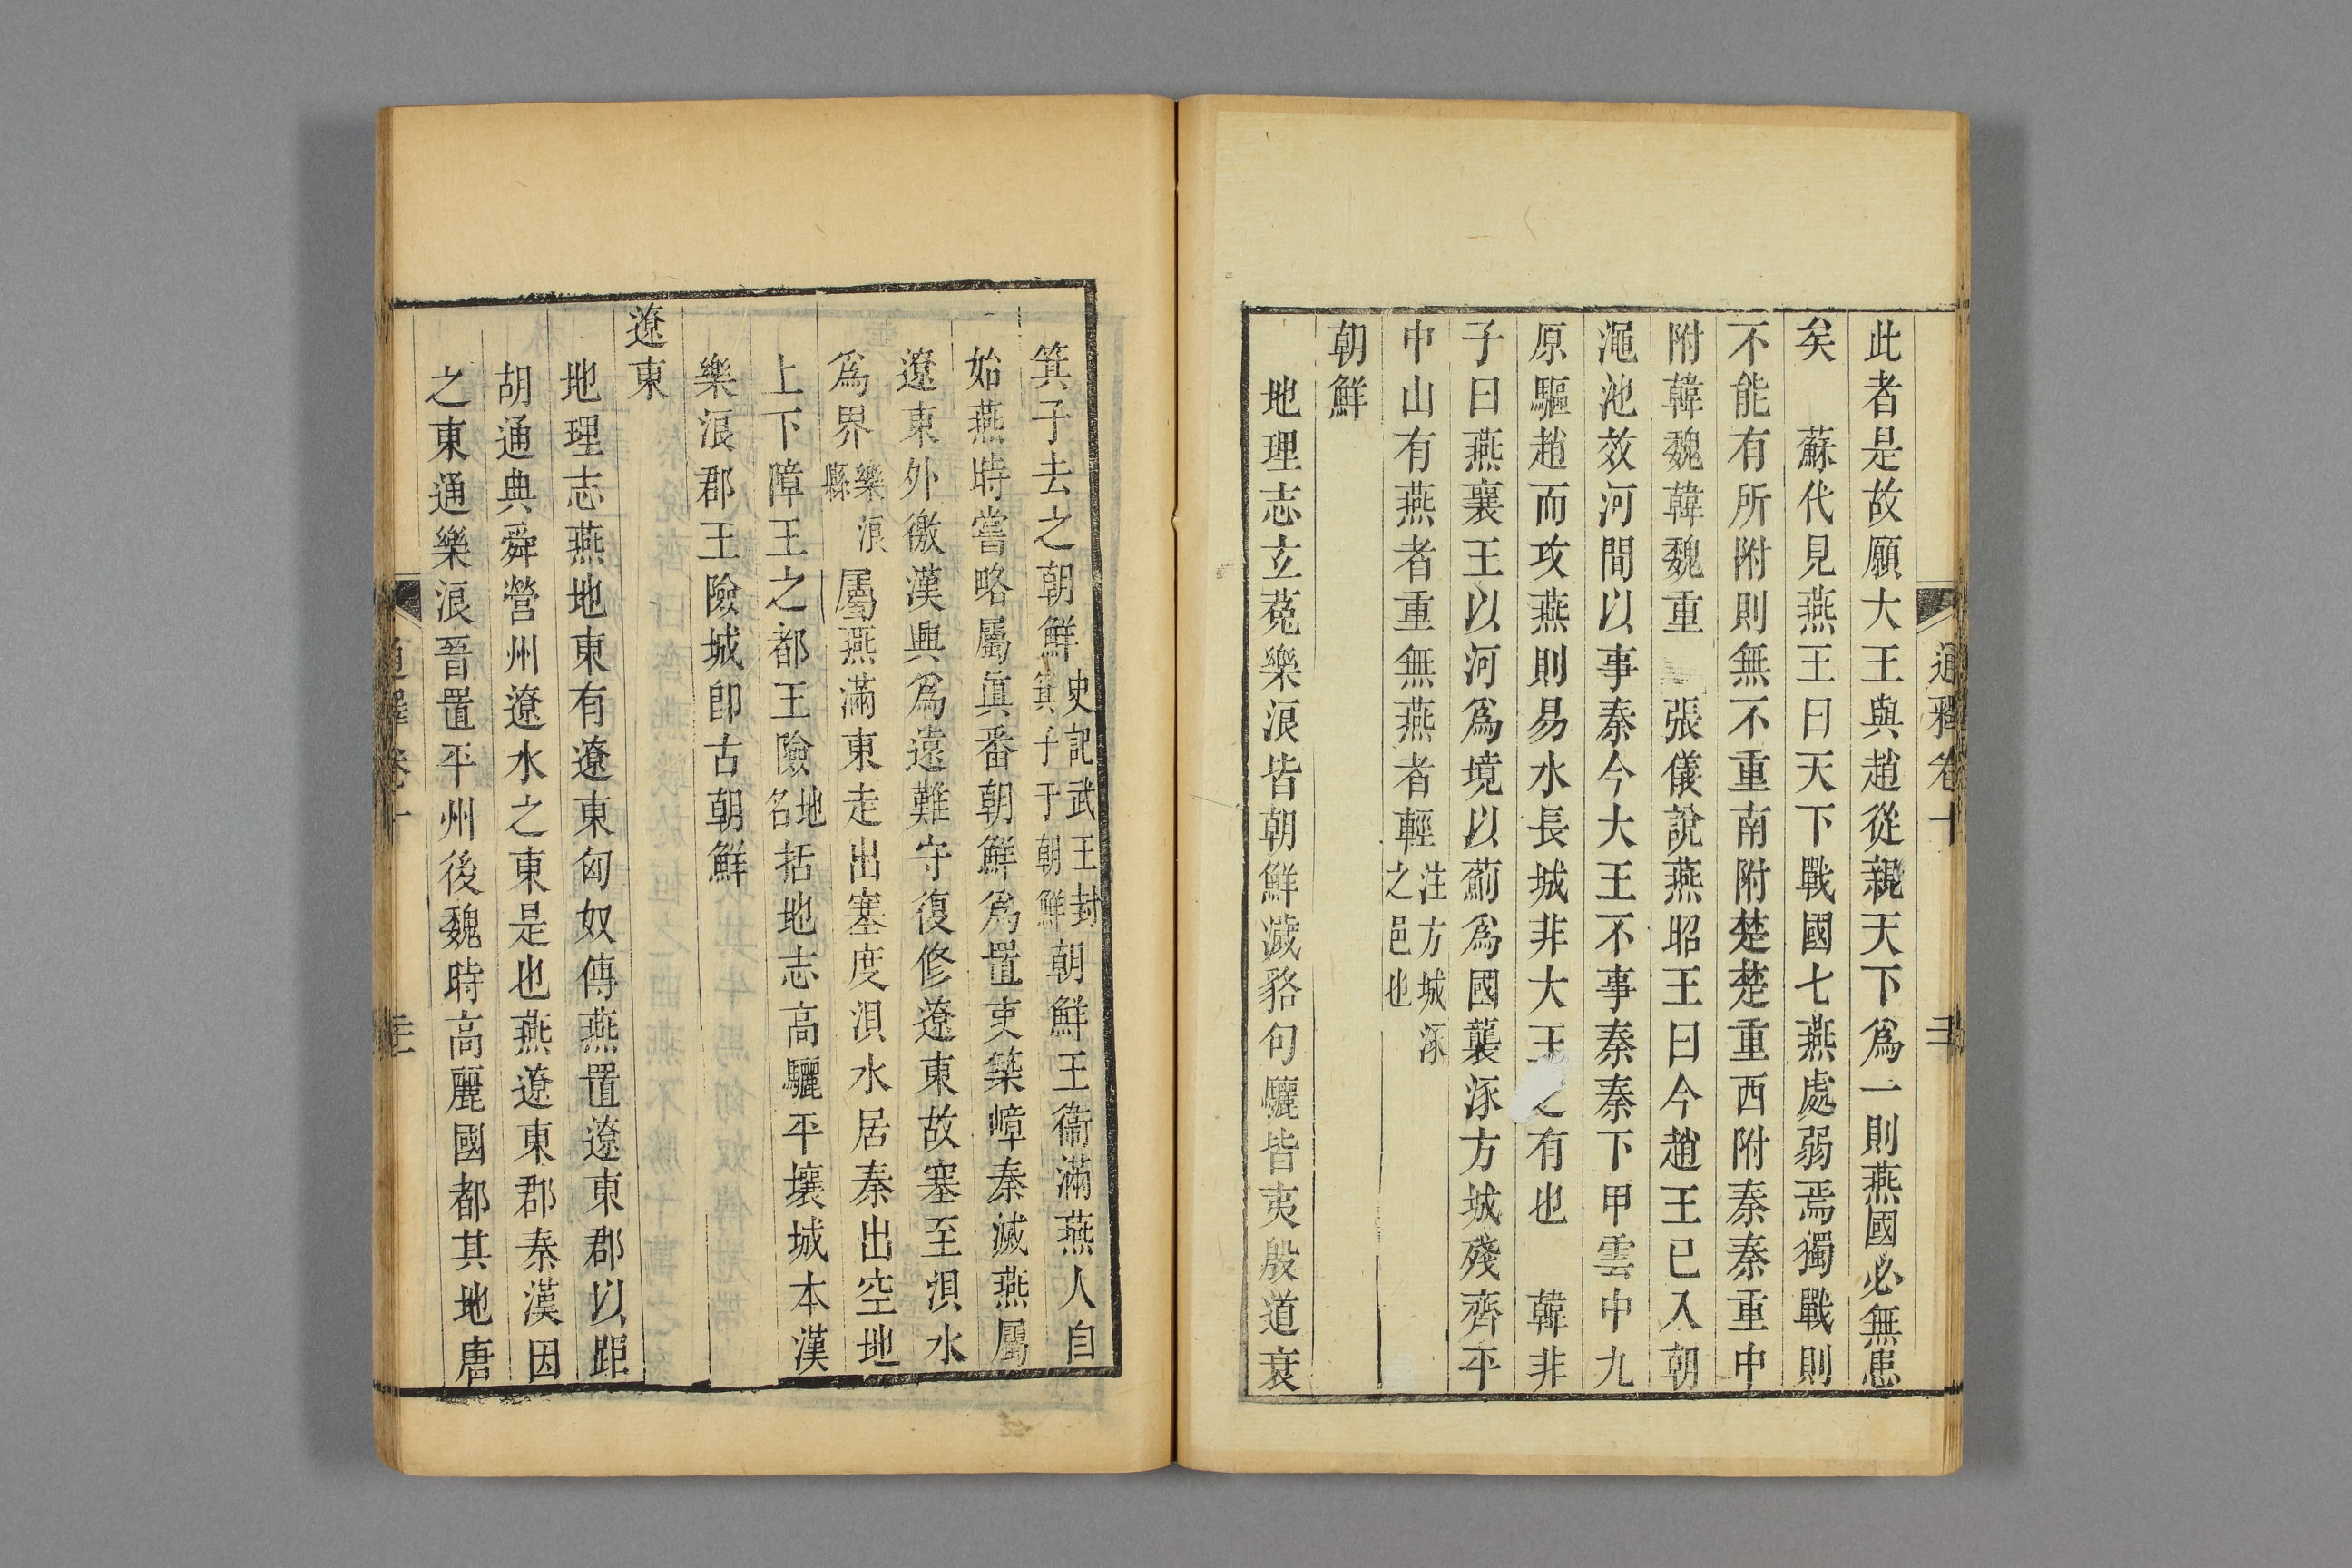 此者是故願大王與趙從親天下爲一則燕國必無患
矣　蘇代見燕王曰天下戰國七燕處弱焉獨戰則
不能有所附則無不重南附楚楚重西附秦秦重中
附韓魏韓魏重　張儀說燕昭王曰今趙王已入朝
澠池效河間以事秦今大王不事秦秦下甲雲中九
原驅趙而攻燕則易水長城非大王之有也　韓非
子曰燕襄王以河爲境以薊爲國襲涿方城殘齊平
中山有燕者重無燕者輕注方城涿之邑也
朝鮮
地理志玄菟樂浪皆朝鮮濊貉句驪皆夷殷道衰
箕子去之朝鮮史記武王封箕子于朝鮮朝鮮王衞滿燕人自
始燕時嘗略屬眞番朝鮮爲置吏築嶂秦滅燕屬
遼東外徼漢興爲遠難守復修遼東故塞至浿水
爲界樂浪縣屬燕滿東走出塞度浿水居秦出空地
上下障王之都王險地名括地志高驪平壤城本漢
樂浪郡王險城卽古朝鮮
遼東
地理志燕地東有遼東匈奴傳燕置遼東郡以距
胡通典舜營州遼水之東是也燕遼東郡秦漢因
之東通樂浪晉置平州後魏時高麗國都其地唐